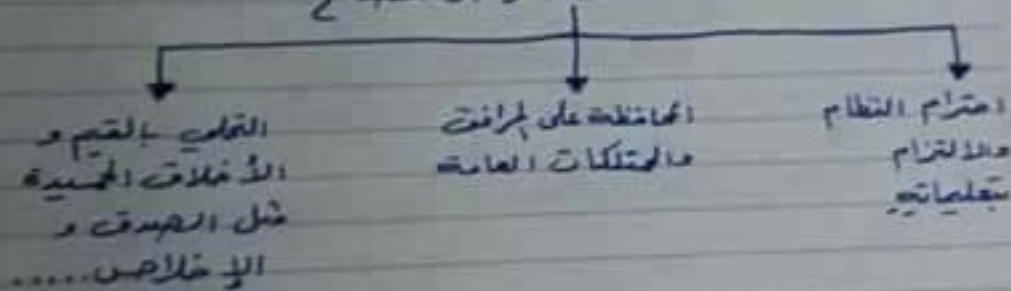 احترام النظام
والالتزام
بتعليماته
المحافظة على المرافق
والممتلكات العامة
التحلي بالقيم و
الأخلاق الحميدة
مثل الصدق و
الإخلاص.....